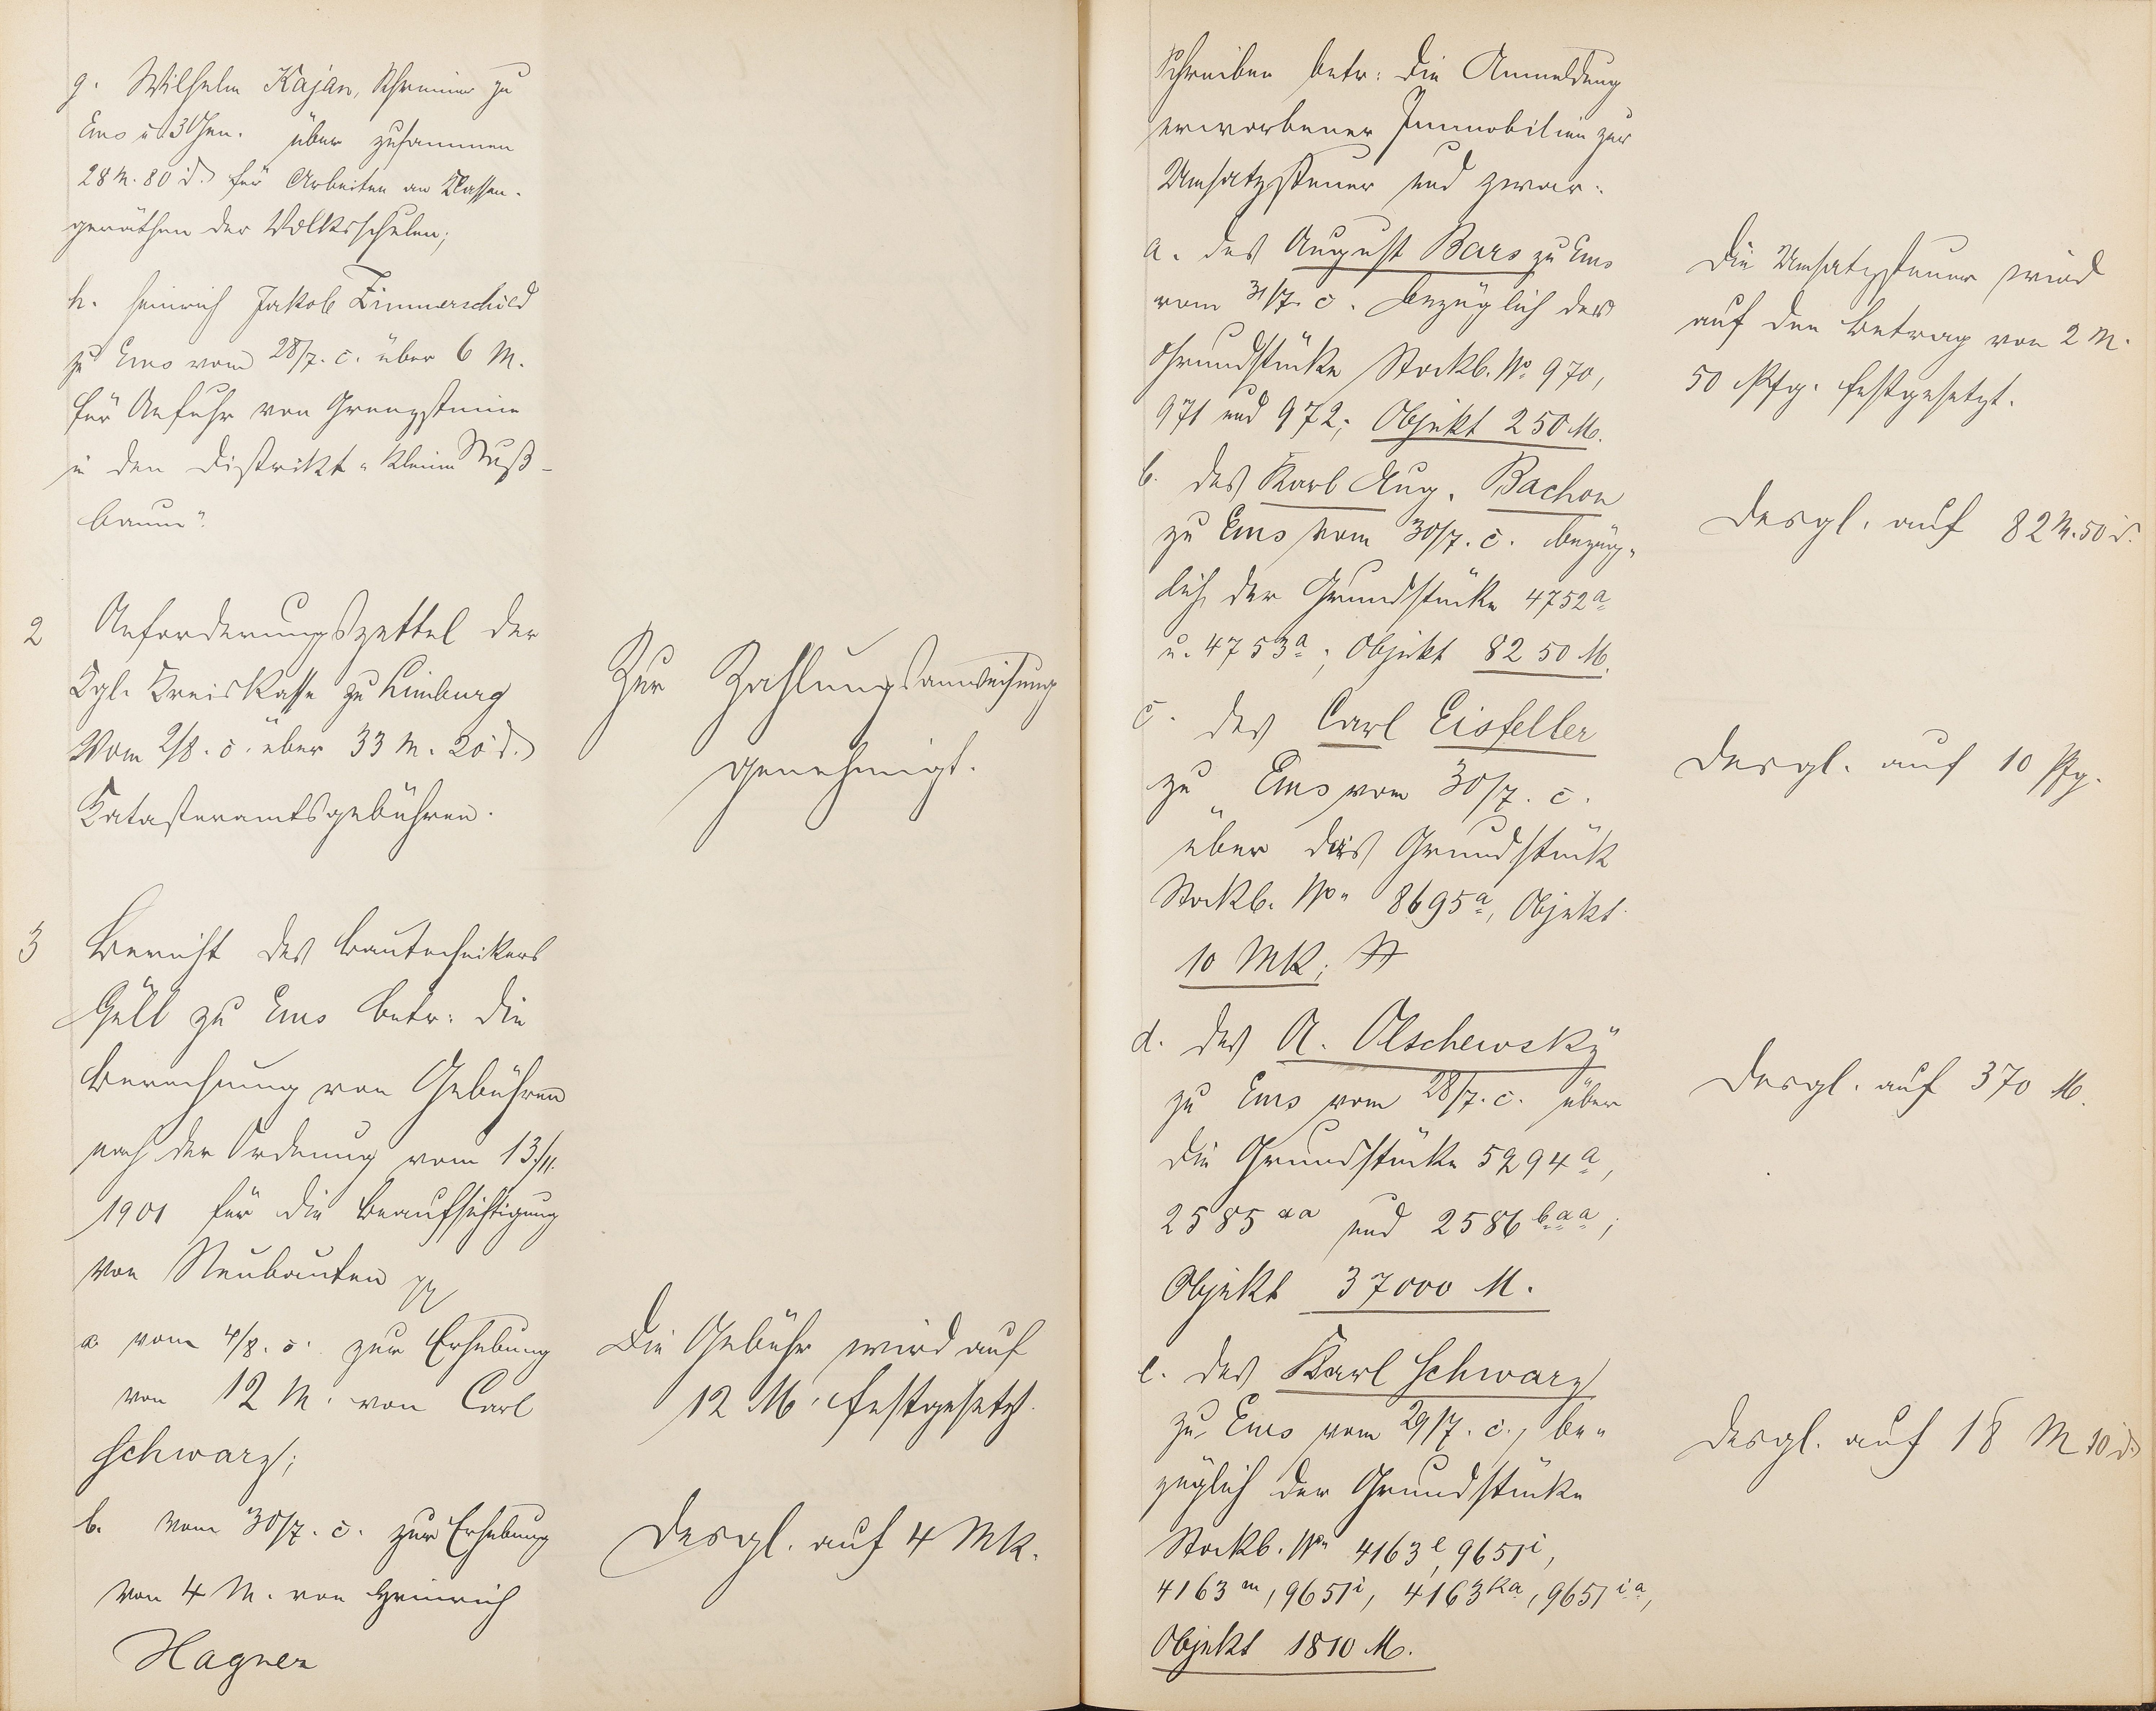 g. Wilhelm Kajan, Schreiner zu
Ems u. 3 Gen. über zusammen
28 M. 80 d. für Arbeiten an Klassen-
geräthen der Volksschulen;
h. Heinrich Jakob Zimmerschied
zu Ems vom 28/7. c. über 6 M.
für Anfuhr von Grenzsteine
in den Distrikt "Kleine Nuß-
baum".
2 Anforderungszettel der
Kgl. Kreiskasse zu Limburg
vom 2/8. c. über 33 M. 20 d.
Katasteramtsgebühren.
Zur Zahlungsanweisung
genehmigt.
3 Bericht des Bautechnikers
Güll zu Ems betr: die
Berechnung von Gebühren
nach der Ordnung vom 13/11.
1901 für die Beaufsichtigung
von Neubauten
a vom 4/8. c. zur Erhebung
von 12 M. von Carl
Schwarz;
Die Gebühr wird auf
12 M. festgesetzt.
b. vom 30/7. c. zur Erhebung
von 4 M. von Heinrich
Hagner
Desgl. auf 4 Mk.
Schreiben betr: die Anmeldung
erworbener Immobilien zur
Umsatzsteuer und zwar:
a. des August Bars zu Ems
vom 31/7. c. bezüglich der
Grundstücke Stockb. No 970,
971 und 972; Objekt 250 M.
Die Umsatzsteuer wird
auf den Betrag von 2 M.
50 Pfg. festgesetzt.
b. des Karl Aug. Bachon
zu Ems vom 30/7. c. bezüg-
lich der Grundstücke 4752a
u. 4753a; Objekt 8250 M.
Desgl. auf 82 M. 50 d.
c. des Carl Eisfeller
zu Ems vom 30/7. c.
über das Grundstück
Stockb. No 8695a, Objekt
10 Mk;
Desgl. auf 10 Pfg.
d. des A. Olschewsky
zu Ems vom 28/7. c. über
die Grundstücke 5294a,
2585aa und 2586baa;
Objekt 37000 M.
Desgl. auf 370 M.
e. des Karl Schwarz
zu Ems vom 29/7. c., be-
züglich der Grundstücke
Stockb. No 4163e, 9651i,
4163m, 9651i, 4163ka, 9651ia,
Objekt 1810 M.
Desgl. auf 18 M 10 d.